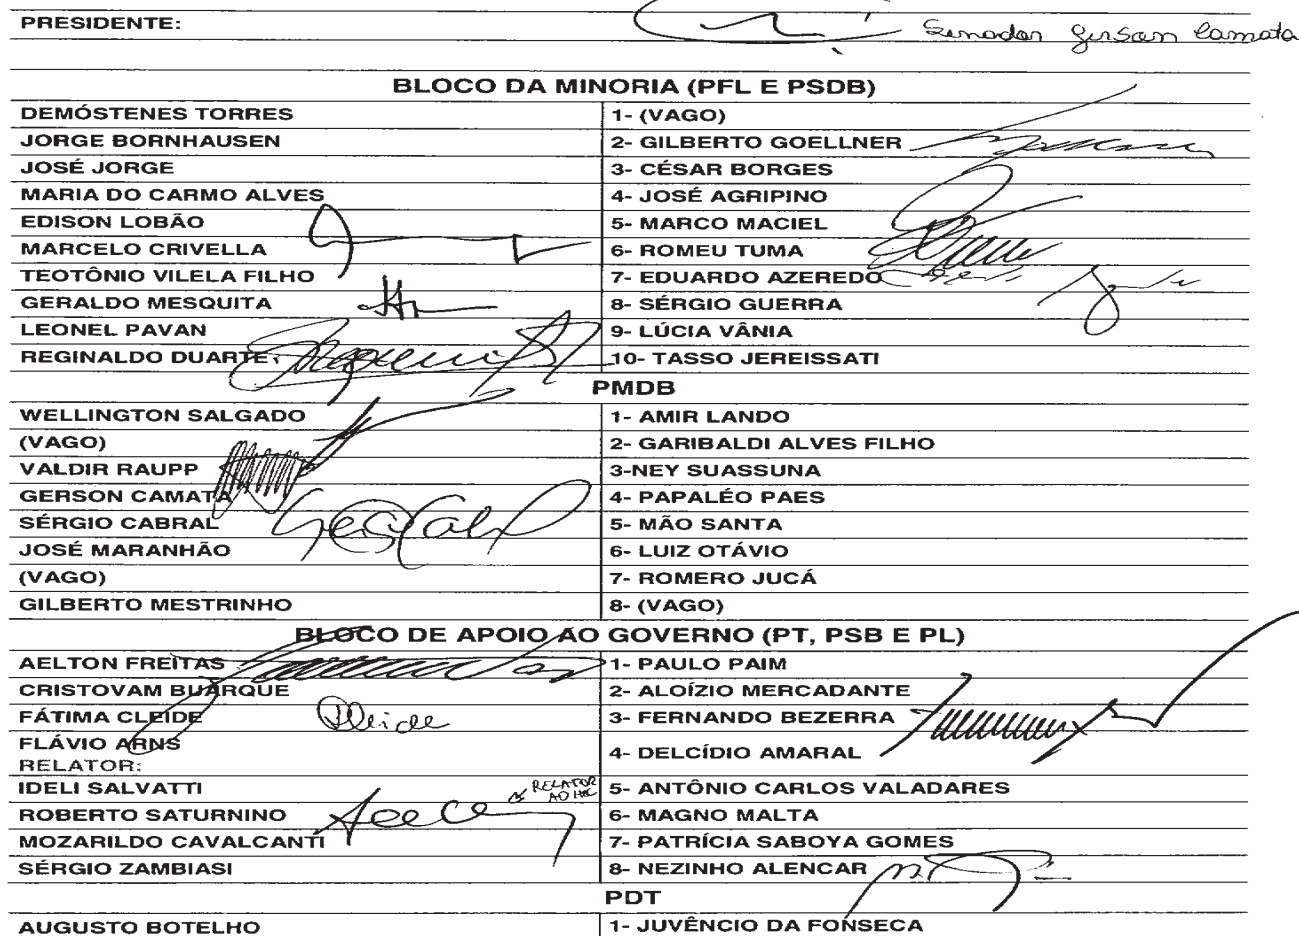 PRESIDENTE: Senador Gerson Camata
BLOCO DA MINORIA (PFL E PSDB)
DEMÓSTENES TORRES 1- (VAGO)
JORGE BORNHAUSEN 2- GILBERTO GOELLNER
JOSÉ JORGE 3- CÉSAR BORGES
MARIA DO CARMO ALVES 4- JOSÉ AGRIPINO
EDISON LOBÃO 5- MARCO MACIEL
MARCELO CRIVELLA 6- ROMEU TUMA
TEOTÔNIO VILELA FILHO 7- EDUARDO AZEREDO
GERALDO MESQUITA 8- SÉRGIO GUERRA
LEONEL PAVAN 9- LÚCIA VÂNIA
REGINALDO DUARTE 10- TASSO JEREISSATI
PMDB
WELLINGTON SALGADO 1- AMIR LANDO
(VAGO) 2- GARIBALDI ALVES FILHO
VALDIR RAUPP 3-NEY SUASSUNA
GERSON CAMATA 4- PAPALÉO PAES
SÉRGIO CABRAL 5- MÃO SANTA
JOSÉ MARANHÃO 6- LUIZ OTÁVIO
(VAGO) 7- ROMERO JUCÁ
GILBERTO MESTRINHO 8- (VAGO)
BLOCO DE APOIO AO GOVERNO (PT, PSB E PL)
AELTON FREITAS 1- PAULO PAIM
CRISTOVAM BUARQUE 2- ALOÍZIO MERCADANTE
FÁTIMA CLEIDE 3- FERNANDO BEZERRA
FLÁVIO ARNS 4- DELCÍDIO AMARAL
RELATOR:
IDELI SALVATTI RELATOR 5- ANTÔNIO CARLOS VALADARES
AD HOC
ROBERTO SATURNINO 6- MAGNO MALTA
MOZARILDO CAVALCANTI 7- PATRÍCIA SABOYA GOMES
SÉRGIO ZAMBIASI 8- NEZINHO ALENCAR
PDT
AUGUSTO BOTELHO 1- JUVÊNCIO DA FONSECA